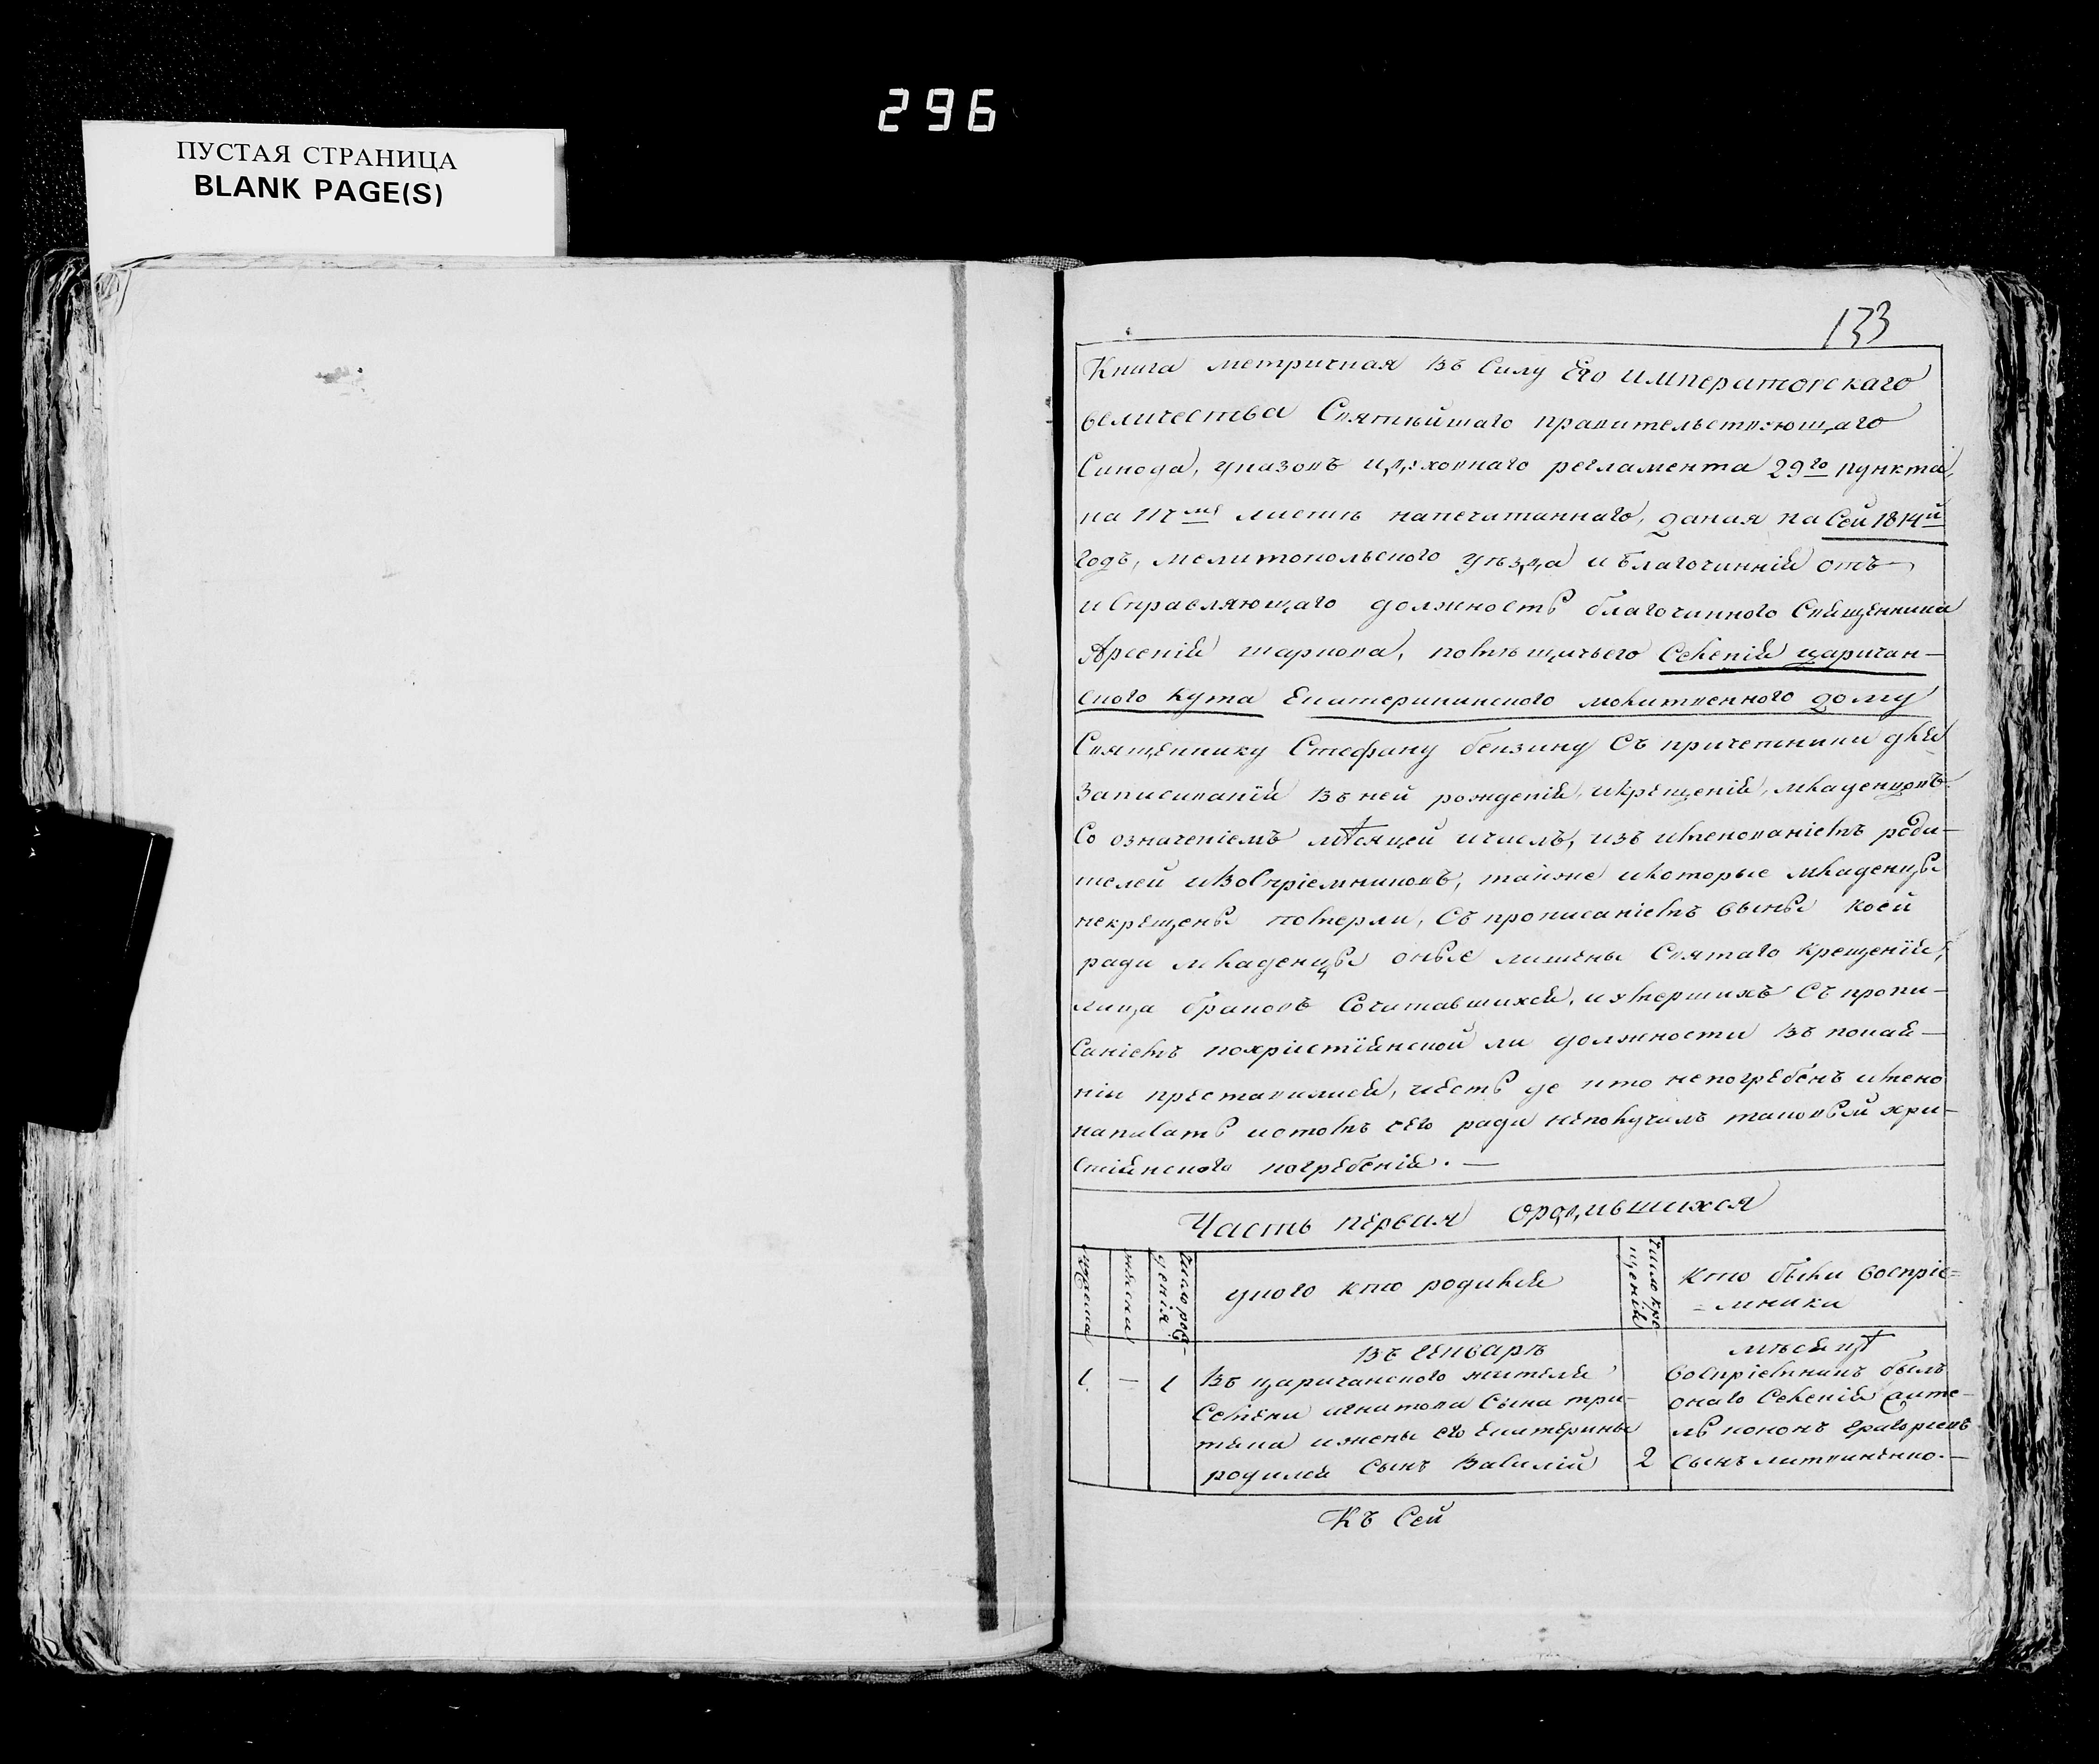 296
ПУСТАЯ СТРАНИЦА
BLANK PAGE(S)
133
Книга метричная въ силу Его императорскаго
величества Святѣйшаго правительствующаго
Синода, указовъ и духовнаго регламента 29го пункта,
на листѣ напечатаннаго, даная на сей 1814й
годъ, мелитопольского уѣзда и благочинія отъ
исправляющаго должность благочинного Священника
Арсенія шаркова, помѣщичьего Селенія царичан-
ского кута Екатерининского молитвенного дому
Священнику Стефану бензину съ причетники для
записиванія въ ней рожденія, икрещенія, младенцовъ
со означеніемъ мѣсяцей ичислъ, изъ именованіемъ роди-
телей ивоспріемниковъ, также икоторые младенцы
некрещены померли, съ прописаніемъ вины коей
ради младенцы оные лишены Святаго крещенія,
лица браковъ сочитавшихся, иумершихъ съ пропи-
саніемъ похристіянской ли должности въ покая-
ніи преставилися, иесть де кто непогребенъ имено
написать и отомъ чего ради неполучилъ таковый хри-
стіянского погребенія. —
Часть первая ородившихся
мужеска
женска
число рож-
денія
укого кто родился
число кре-
щенія
кто были воспріе-
мники
въ генварѣ мѣсяцѣ
1 — 1 въ царичанского жителя воспріемникъ былъ
Семена игнатова сына три- онаго Селенія жите-
тяка ижены его Екатерины ль кононъ григоріевъ
родился сынъ Василій 2 сынъ литвиненко. —
Къ сей